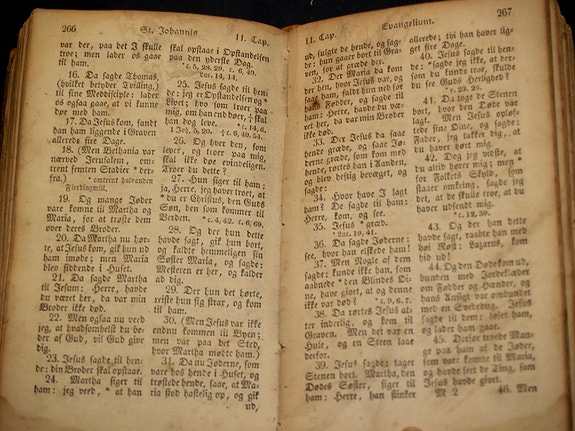 266
St. Johannis
11. Cap.
var der, paa det J skulle
troe; men lader os gaae
til ham.
16. Da sagde Thomas,
(hvilket betyder Tvilling,)
til sine Meddisciple: lader
os ogsaa gaae, at vi kunne
døe med ham.
17. Da Jesus kom, fandt
han ham liggende i Graven
allerede fire Dage.
18. (Men Bethania var
nærved Jerusalem, om-
trent femten Stadier *der-
fra.)
*omtrent halvanden
Fjerdingmiil.
19. Og mange Jøder
vare komne til Martha og
Maria, for at trøste dem
over deres Broder.
20. Da Martha nu hør-
te, at Jesus kom, gik hun ud
ham imøde; men Maria
blev siddende i Huset.
21. Da sagde Martha
til Jesum: Herre, havde
du været her, da var min
Broder ikke død.
22. Men ogsaa nu veed
jeg, at hvadsomhelst du be-
der af Gud, vil Gud give
dig.
23. Jesus sagde til hen-
de: din Broder skal opstaae.
24. Martha siger til
ham: jeg veed, *at han
skal opstaae i Opstandelsen
paa den yderste Dag.
*c. 5, 28. 29. c. 6, 40.
Luc. 14, 14.
25. Jesus sagde til hen-
de: jeg er Opstandelsen og
*Livet; hvo som troer paa
mig, om han end døer, †skal
han dog leve.
*c. 14, 6.
1 Joh. 5, 20. †c. 6, 40. 54.
26. Og hver den, som
lever, og troer paa mig,
skal ikke døe evindeligen.
Troer du dette?
27. Hun siger til ham:
ja, Herre, jeg haver troet, at
*du er Christus, den Guds
Søn, den som kommer til
Verden.
*c. 4, 42. c. 6, 69.
28. Og der hun dette
havde sagt, gik hun bort,
og kaldte hemmeligen sin
Søster Maria, og sagde:
Mesteren er her, og kalder
ad dig.
29. Der hun det hørte,
reiste hun sig strax, og kom
til ham.
30. (Men Jesus var ikke
endnu kommen til Byen;
men var paa det Sted,
hvor Martha mødte ham.)
31. Da nu Jøderne, som
vare hos hende i Huset, og
trøstede hende, saae, at Ma-
ria stod hastelig op, og gik
ud,
11. Cap.
Evangelium.
267
ud, fulgte de hende, og sag-
de: hun gaaer ud til Graven,
for at græde der.
32. Der Maria da kom
der hen, hvor Jesus var, og
saae ham, faldt hun ned for
hans Fødder, og sagde til
ham: Herre, havde du væ-
ret her, da var min Broder
ikke død.
33. Der Jesus da saae
hende græde, og saae Jø-
derne græde, som kom med
hende, rørtes han i Aanden,
og blev heftig bevæget, og
sagde:
34. Hvor have J lagt
ham? De sagde til ham:
Herre, kom, og see.
35. Jesus *græd.
*Luc. 19, 41.
36. Da sagde Jøderne:
see, hvor han elskede ham!
37. Men Nogle af dem
sagde: kunde ikke han, som
aabnede *den Blindes Øi-
ne, have gjort, at og denne
ikke var død?
*c. 9, 6. 7.
38. Da rørtes Jesus at-
ter inderlig, og kom til
Graven. Men det var en
Hule, og en Steen laae
derfor.
39. Jesus sagde: tager
Stenen bort. Martha, den
Dødes Søster, siger til
ham: Herre, han stinker
allerede; thi han haver lig-
get fire Dage.
40. Jesus sagde til hen-
de: *sagde jeg ikke, at der-
som du kunde troe, skulde
du see Guds Herlighed?
*v. 23. 25.
41. Da toge de Stenen
bort, hvor den Døde var
lagt. Men Jesus opløf-
tede sine Øine, og sagde:
Fader, jeg takker dig, at
du haver hørt mig.
42. Dog jeg vidste, at
du altid hører mig; men *
for Folkets Skyld, som
staaer omkring, sagde jeg
det, at de skulle troe, at du
haver udsendt mig.
*c. 12, 30.
43. Og der han dette
havde sagt, raabte han med
høi Røst: Lazarus, kom
hid ud!
44. Og den Døde kom ud,
bunden med Jordeklæder
om Fødder og Hænder, og
hans Ansigt var ombundet
med en Svededug. Jesus
sagde til dem: løser ham,
og lader ham gaae.
45. Derfor troede Man-
ge paa ham af de Jøder,
som vare komne til Maria,
og havde seet de Ting, som
Jesus havde gjort.
M 2
46. Men